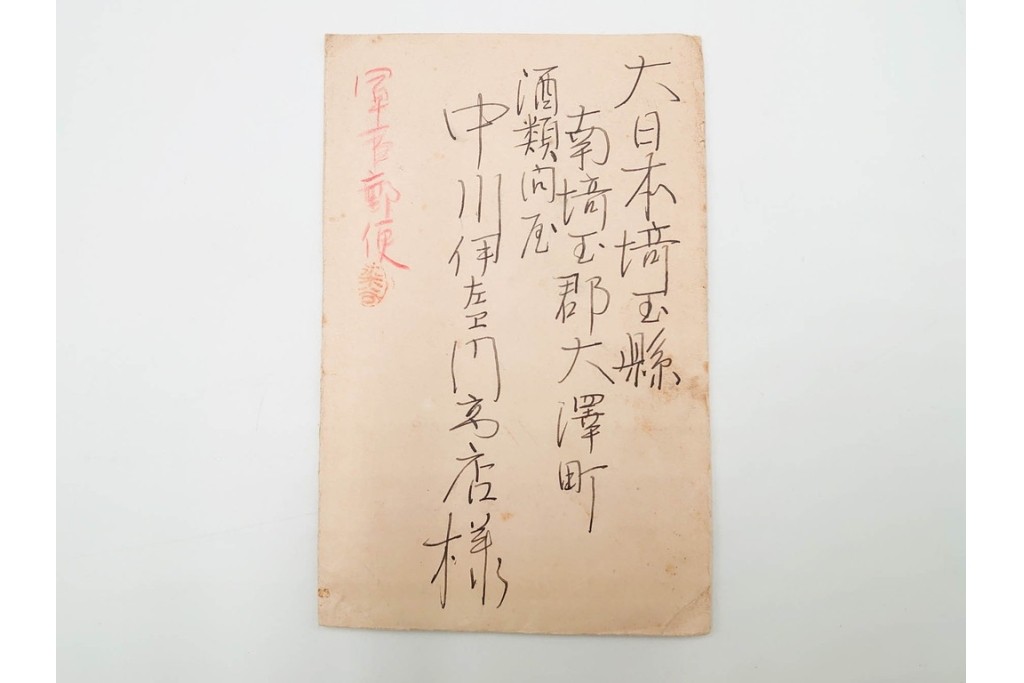 大日本埼玉縣
南埼玉郡大澤町
酒類問屋
中川伊左エ門商店様
軍事郵便
染谷